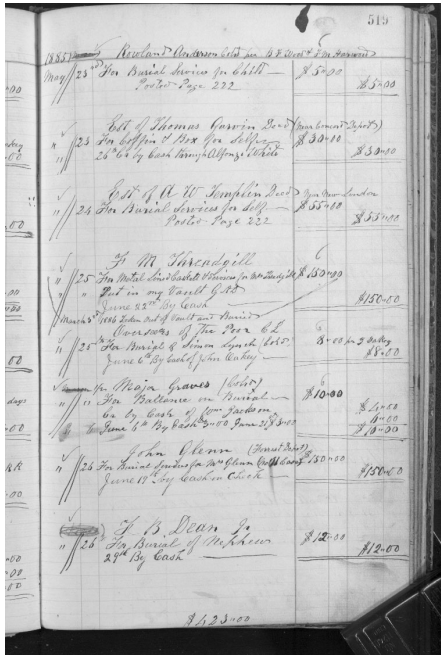 519
1885 Rowland Anderson Cold per B. F. West & Harwood
May 23rd For Burial Services for Child — $5=00
Posted Page 222 $5=00
Est of Thomas Garvin Decd (near Concord Depot)
" 23 For Coffin & Box for Self — $30=00
26th Cr by Cash through Alfonzo White $30=00
Est of A W Templin Decd Near New London
" 24 For Burial Services for Self — $55=00
Posted Page 222 $55=00
F M Threadgill
" 25 For Metal Lined Caskets & Services for Mrs $150=00
" " Put in my Vault G.R.D
June 22nd By Cash — $150=00
March 3rd 1886 Taken out of Vault and Buried
Overseers of The Poor C L
" 25th For Burial of Simon Lynch (Cold) 8=00 per J Oakey
June 6th By Cash of John Oakey $8=00
pr Major Graves (Cold)
" " For Ballance on Burial — $10=00
Cr by Cash of Wm Jackson $4=00
June 6th By Cash 3=00 June 20 $3=00 6=00
$10=00
John Glenn (Forrest Depot)
" 26 For Burial Services for Mrs Glenn $150=00
June 17th by Cash in Check — $150=00
F B Dean Jr
" 26 For Burial of Nephew $12=00
29th By Cash $12=00
$423=00